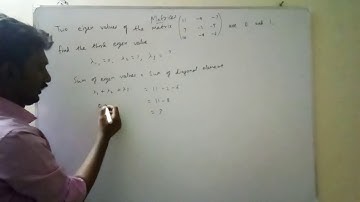 Matrices
Two eigen values of the matrix (11 -4 -7
7 -2 -5
10 -4 -6) are 0 and 1,
find the third eigen value
λ₁ = 0, λ₂ = 1, λ₃ = ?
Sum of eigen values = Sum of diagonal element
λ₁ + λ₂ + λ3 = 11 - 2 - 6
= 11 - 8
= 3